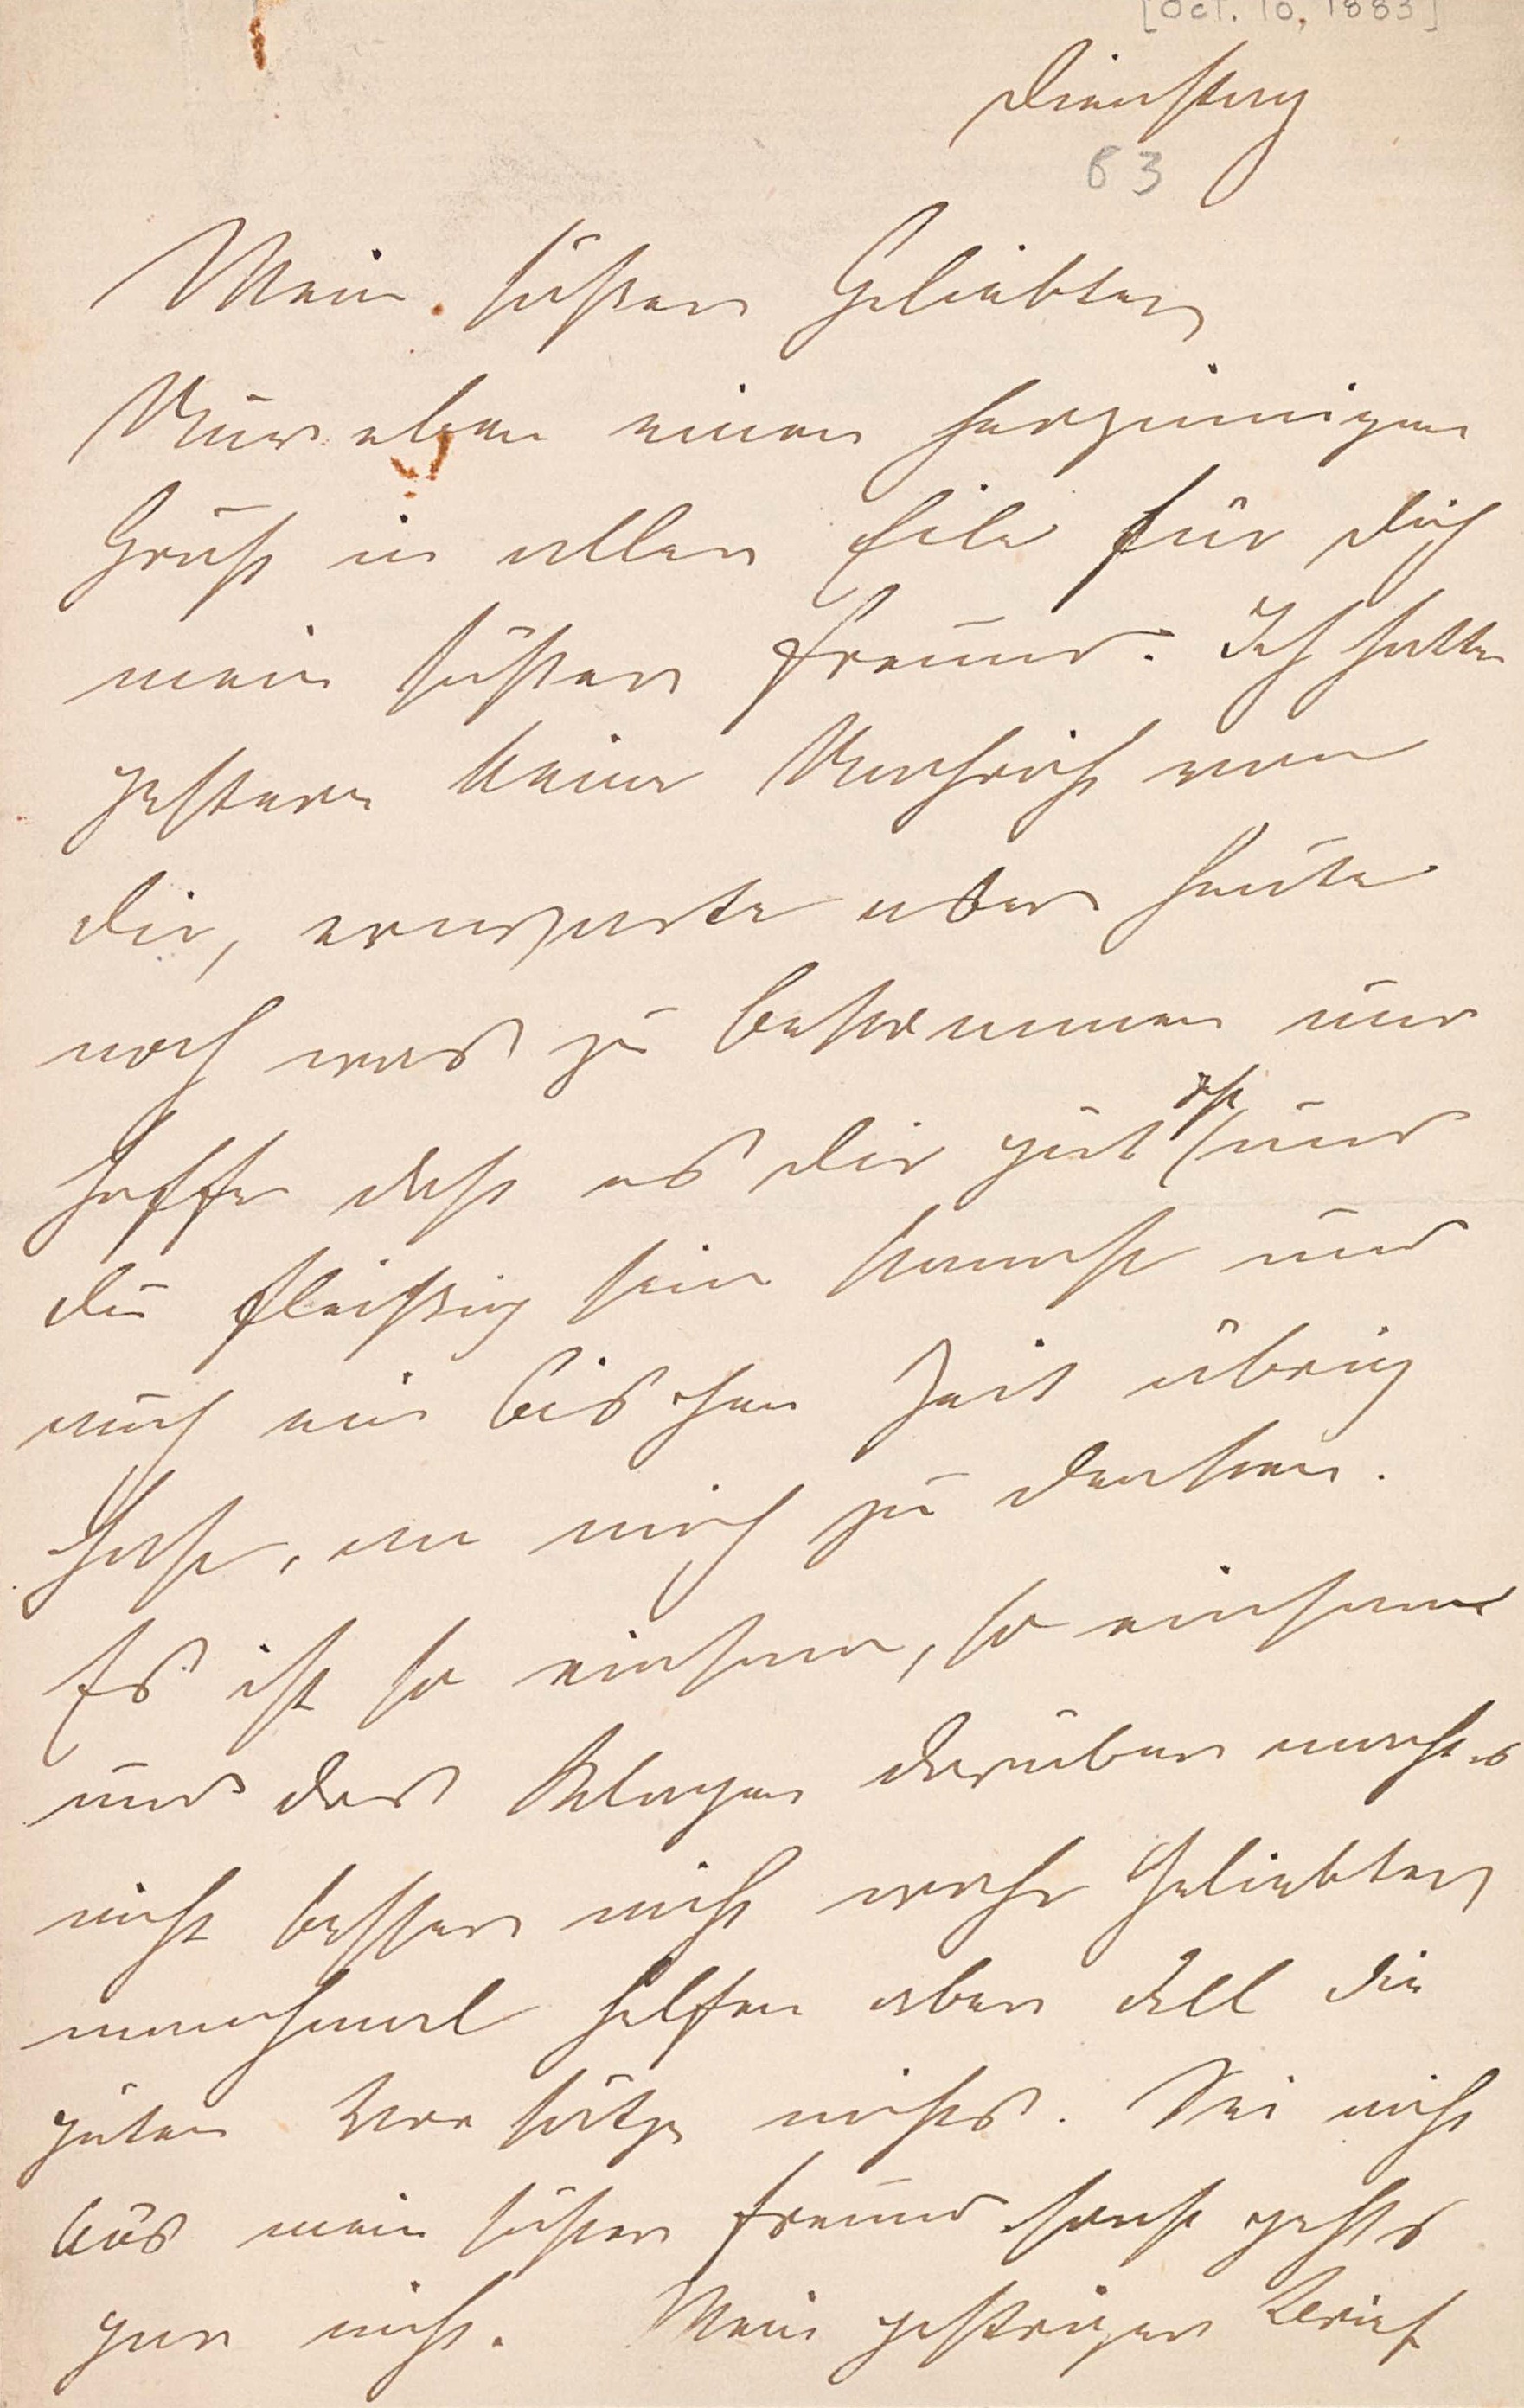 [Oct. 10, 1883]
Dienstag
83
Mein süßer Geliebter
Nur eben einen herzinnigen
Gruß in aller Eile für dich
mein süßer Freund. Ich hatte
gestern keine Nachricht von
dir, erwarte aber heute
noch was zu bekommen und
hoffe daß es dir gut geht und
du fleißig sein kannst und
auch ein bischen Zeit übrig
hast, an mich zu denken.
Es ist so einsam, so einsam
und das Klagen darüber machts
nicht besser nicht wahr Geliebter
manchmal helfen aber all die
guten Vorsätze nichts. Sei nicht
bös mein süßer Freund sonst gehts
gar nicht. Mein gestriger Brief